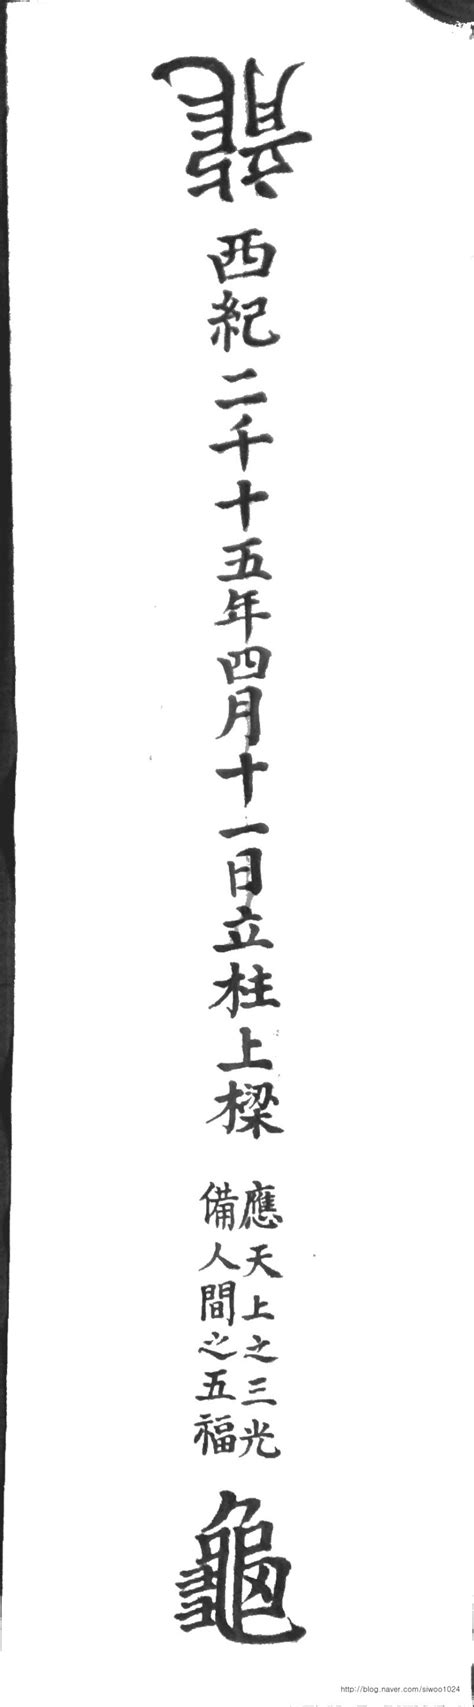 龍
西紀二千十五年四月十一日立柱上樑
應天上之三光
備人間之五福
龜
http://blog.naver.com/siwoo1024